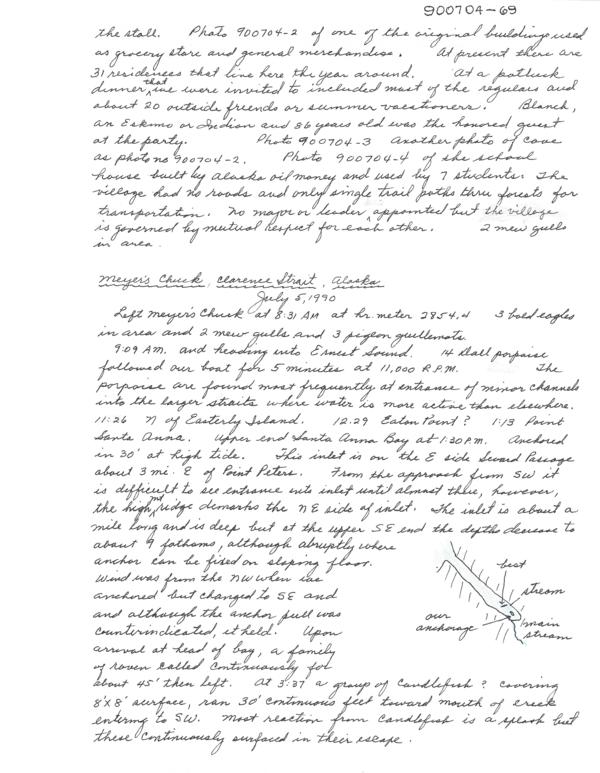 900704-69
the stall. Photo 900704-2 of one of the original buildings used
as grocery store and general merchandise. At present there are
31 residences that live here the year around. At a potluck
dinner that we were invited to included most of the regulars and
about 20 outside friends or summer vacationers. Blanch,
an Eskimo or Indian and 86 years old was the honored guest
at the party. Photo 900704-3 Another photo of cove
as photo no 900704-2. Photo 900704-4 of the school
house built by Alaska oil money and used by 7 students. The
village had no roads and only single trail paths thru forests for
transportation. No mayor or leader appointed but the village
is governed by mutual respect for each other. 2 mew gulls
in area.
Meyer's Chuck, Clarence Strait, Alaska
July 5, 1990
Left Meyer's Chuck at 8:31 AM at hr. meter 2854.4 3 bald eagles
in area and 2 mew gulls and 3 pigeon guillemots.
9:09 AM. and heading into Ernest Sound. 14 Dall porpoise
followed our boat for 5 minutes at 11,000 R.P.M. The
porpoise are found most frequently at entrance of minor channels
into the larger straits where water is more active than elsewhere.
11:26 N of Easterly Island. 12:29 Eaton Point? 1:13 Point
Santa Anna. Upper end Santa Anna Bay at 1:30 P.M. Anchored
in 30' at high tide. This inlet is on the E side Seward Passage
about 3 mi. E of Point Peters. From the approach from SW it
is difficult to see entrance into inlet until almost there, however,
the high mt ridge demarks the NE side of inlet. The inlet is about a
mile long and is deep but at the upper SE end the depths decrease to
about 9 fathoms, although abruptly where
anchor can be fixed on sloping floor.
Wind was from the NW when we
anchored but changed to SE and
and although the anchor pull was
counterindicated, it held. Upon
arrival at head of bay, a family
of raven called continuously for
about 45' then left. At 3:37 a group of Candlefish? covering
8'x8' surface, ran 30' continuous feet toward mouth of creek
entering to SW. Most reaction from candlefish is a splash but
these continuously surfaced in their escape.
best
stream
our
anchorage
main
stream